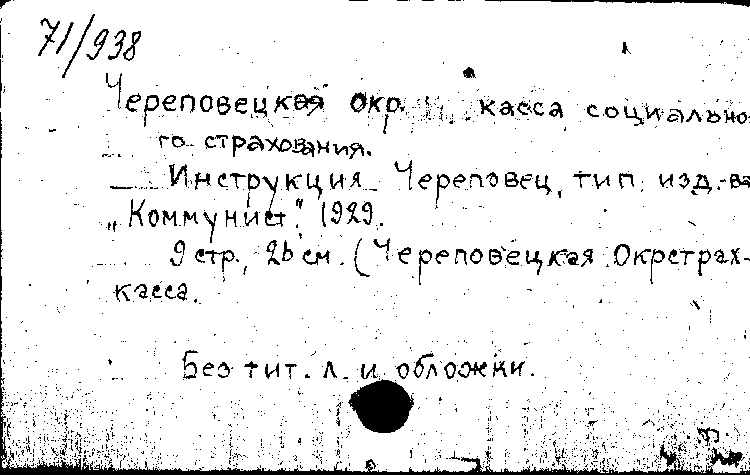 71/938
Череповецкая окр. касса социально-
го страхования.
Инструкция Череповец, тип. изд-ва
„Коммунист". 1929.
9 стр., 26 см. (Череповецкая Окрстрах-
касса.
Без тит. л. и обложки.